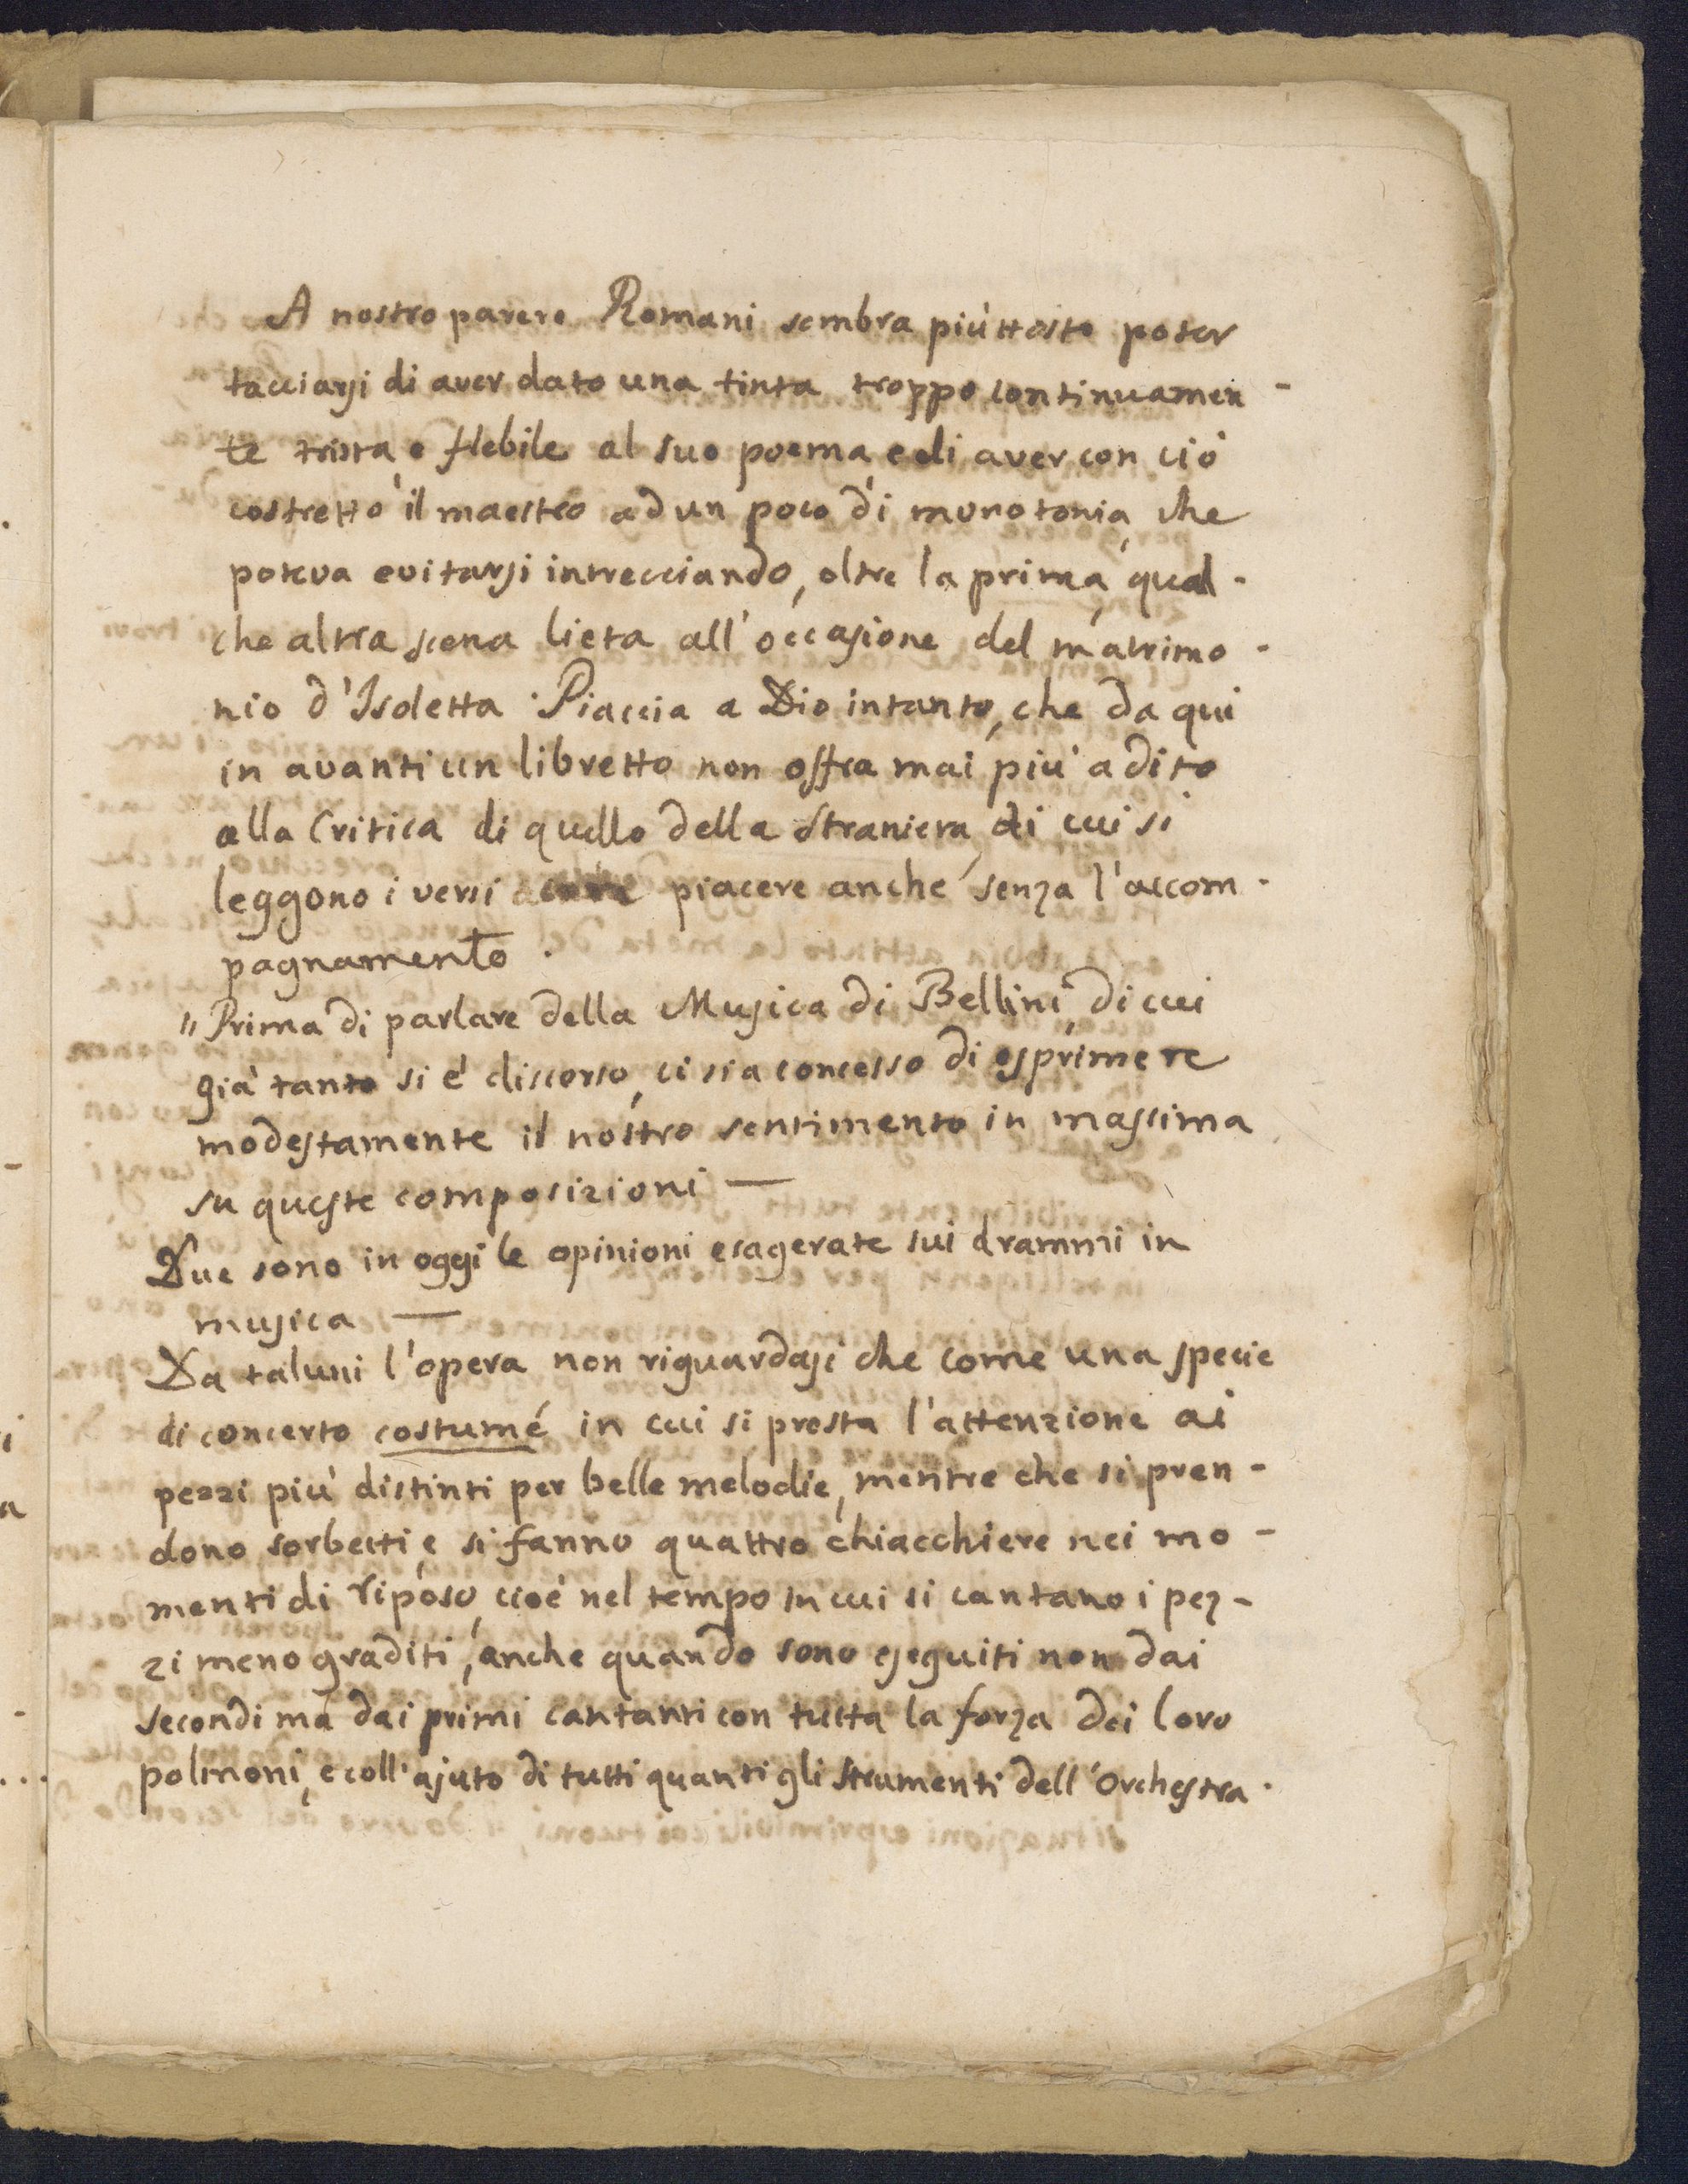 A nostro parere Romani sembra piùttosto poter
tacciarsi di aver dato una tinta troppo continuamen-
te trista, e flebile al suo poema, e di aver con ciò
costretto il maestro ad un poco di monotonia, che
poteva evitarsi intrecciando, oltre la prima, qual-
che altra scena lieta all'occasione del matrimo-
nio d'Isoletta. Piaccia a Dio intanto, che da qui
in avanti un libretto non offra mai più adito
alla Critica di quello della Straniera, di cui si
leggono i versi piacere anche senza l'accom-
pagnamento.
"Prima di parlare della Musica di Bellini, di cui
già tanto si è discorso, ci sia concesso di esprimere
modestamente il nostro sentimento in massima
su queste composizioni —
Due sono in oggi le opinioni esagerate sui drammi in
musica —
Da taluni l'opera non riguardasi che come una specie
di concerto costumé in cui si presta l'attenzione ai
pezzi più distinti per belle melodie, mentre che si pren-
dono sorbetti, e si fanno quattro chiacchiere nei mo-
menti di riposo, cioè nel tempo in cui si cantano i pez-
zi meno graditi, anche quando sono eseguiti non dai
secondi ma dai primi cantanti con tutta la forza dei loro
polmoni, e coll'ajuto di tutti quanti gli strumenti dell'Orchestra.